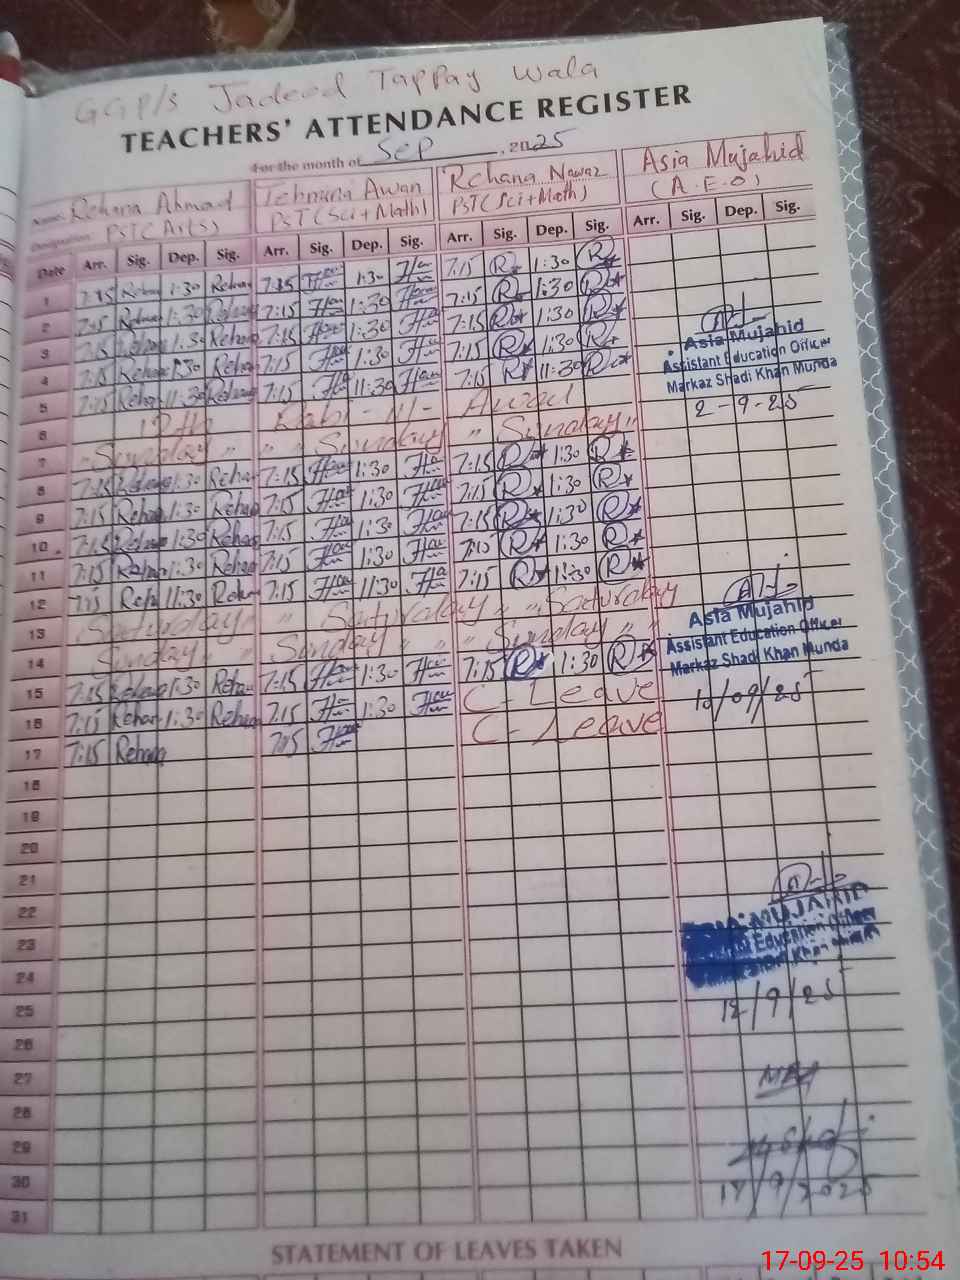 GGP/S Jadeed Tappay Wala
TEACHERS' ATTENDANCE REGISTER
For the month of Sep , 2025
Name: Rehana Ahmad Tehmina Awan Rehana Nawaz Asia Mujahid
Designation PST (Arts) PST (Sci + Math) PST (Sci + Math) (A.E.O)
Date Arr. Sig. Dep. Sig. Arr. Sig. Dep. Sig. Arr. Sig. Dep. Sig. Arr. Sig. Dep. Sig.
1 7:15 Rehana 1:30 Rehana 7:15 1:30 7:15 R 1:30 R
2 7:15 Rehana 1:30 Rehana 7:15 1:30 7:15 R 1:30 R
3 7:15 Rehana 1:30 Rehana 7:15 1:30 7:15 R 1:30 R
4 7:15 Rehana 1:30 Rehana 7:15 1:30 7:15 R 1:30 R
5 7:15 Rehana 11:30 Rehana 7:15 11:30 7:15 R 11:30 R
6 12th Rabi-ul-Awal
7 "Sunday" " "Sunday " Sunday "
8 7:15 Rehana 1:30 Rehana 7:15 1:30 7:15 R 1:30 R
9 7:15 Rehana 1:30 Rehana 7:15 1:30 7:15 R 1:30 R
10 7:15 Rehana 1:30 Rehana 7:15 1:30 7:15 R 1:30 R
11 7:15 Rehana 1:30 Rehana 7:15 1:30 7:15 R 1:30 R
12 7:15 Reha 11:30 Rehana 7:15 11:30 7:15 R 11:30 R
13 Saturday " " Saturday " " Saturday
14 Sunday " " Sunday " " Sunday "
15 7:15 Rehana 1:30 Rehana 7:15 1:30 7:15 R 1:30 R
16 7:15 Rehana 1:30 Rehana 7:15 1:30 C-Leave
17 7:15 Rehana 7:15 C-Leave
18
19
20
21
22
23
24
25
26
27
28
29
30
31
Asia Mujahid
Assistant Education Officer
Markaz Shadi Khan Munda
2-9-25
Asia Mujahid
Assistant Education Officer
Markaz Shadi Khan Munda
MUJAHID
Education Officer
Khan
12/9/25
17/9/2025
STATEMENT OF LEAVES TAKEN
17-09-25 10:54